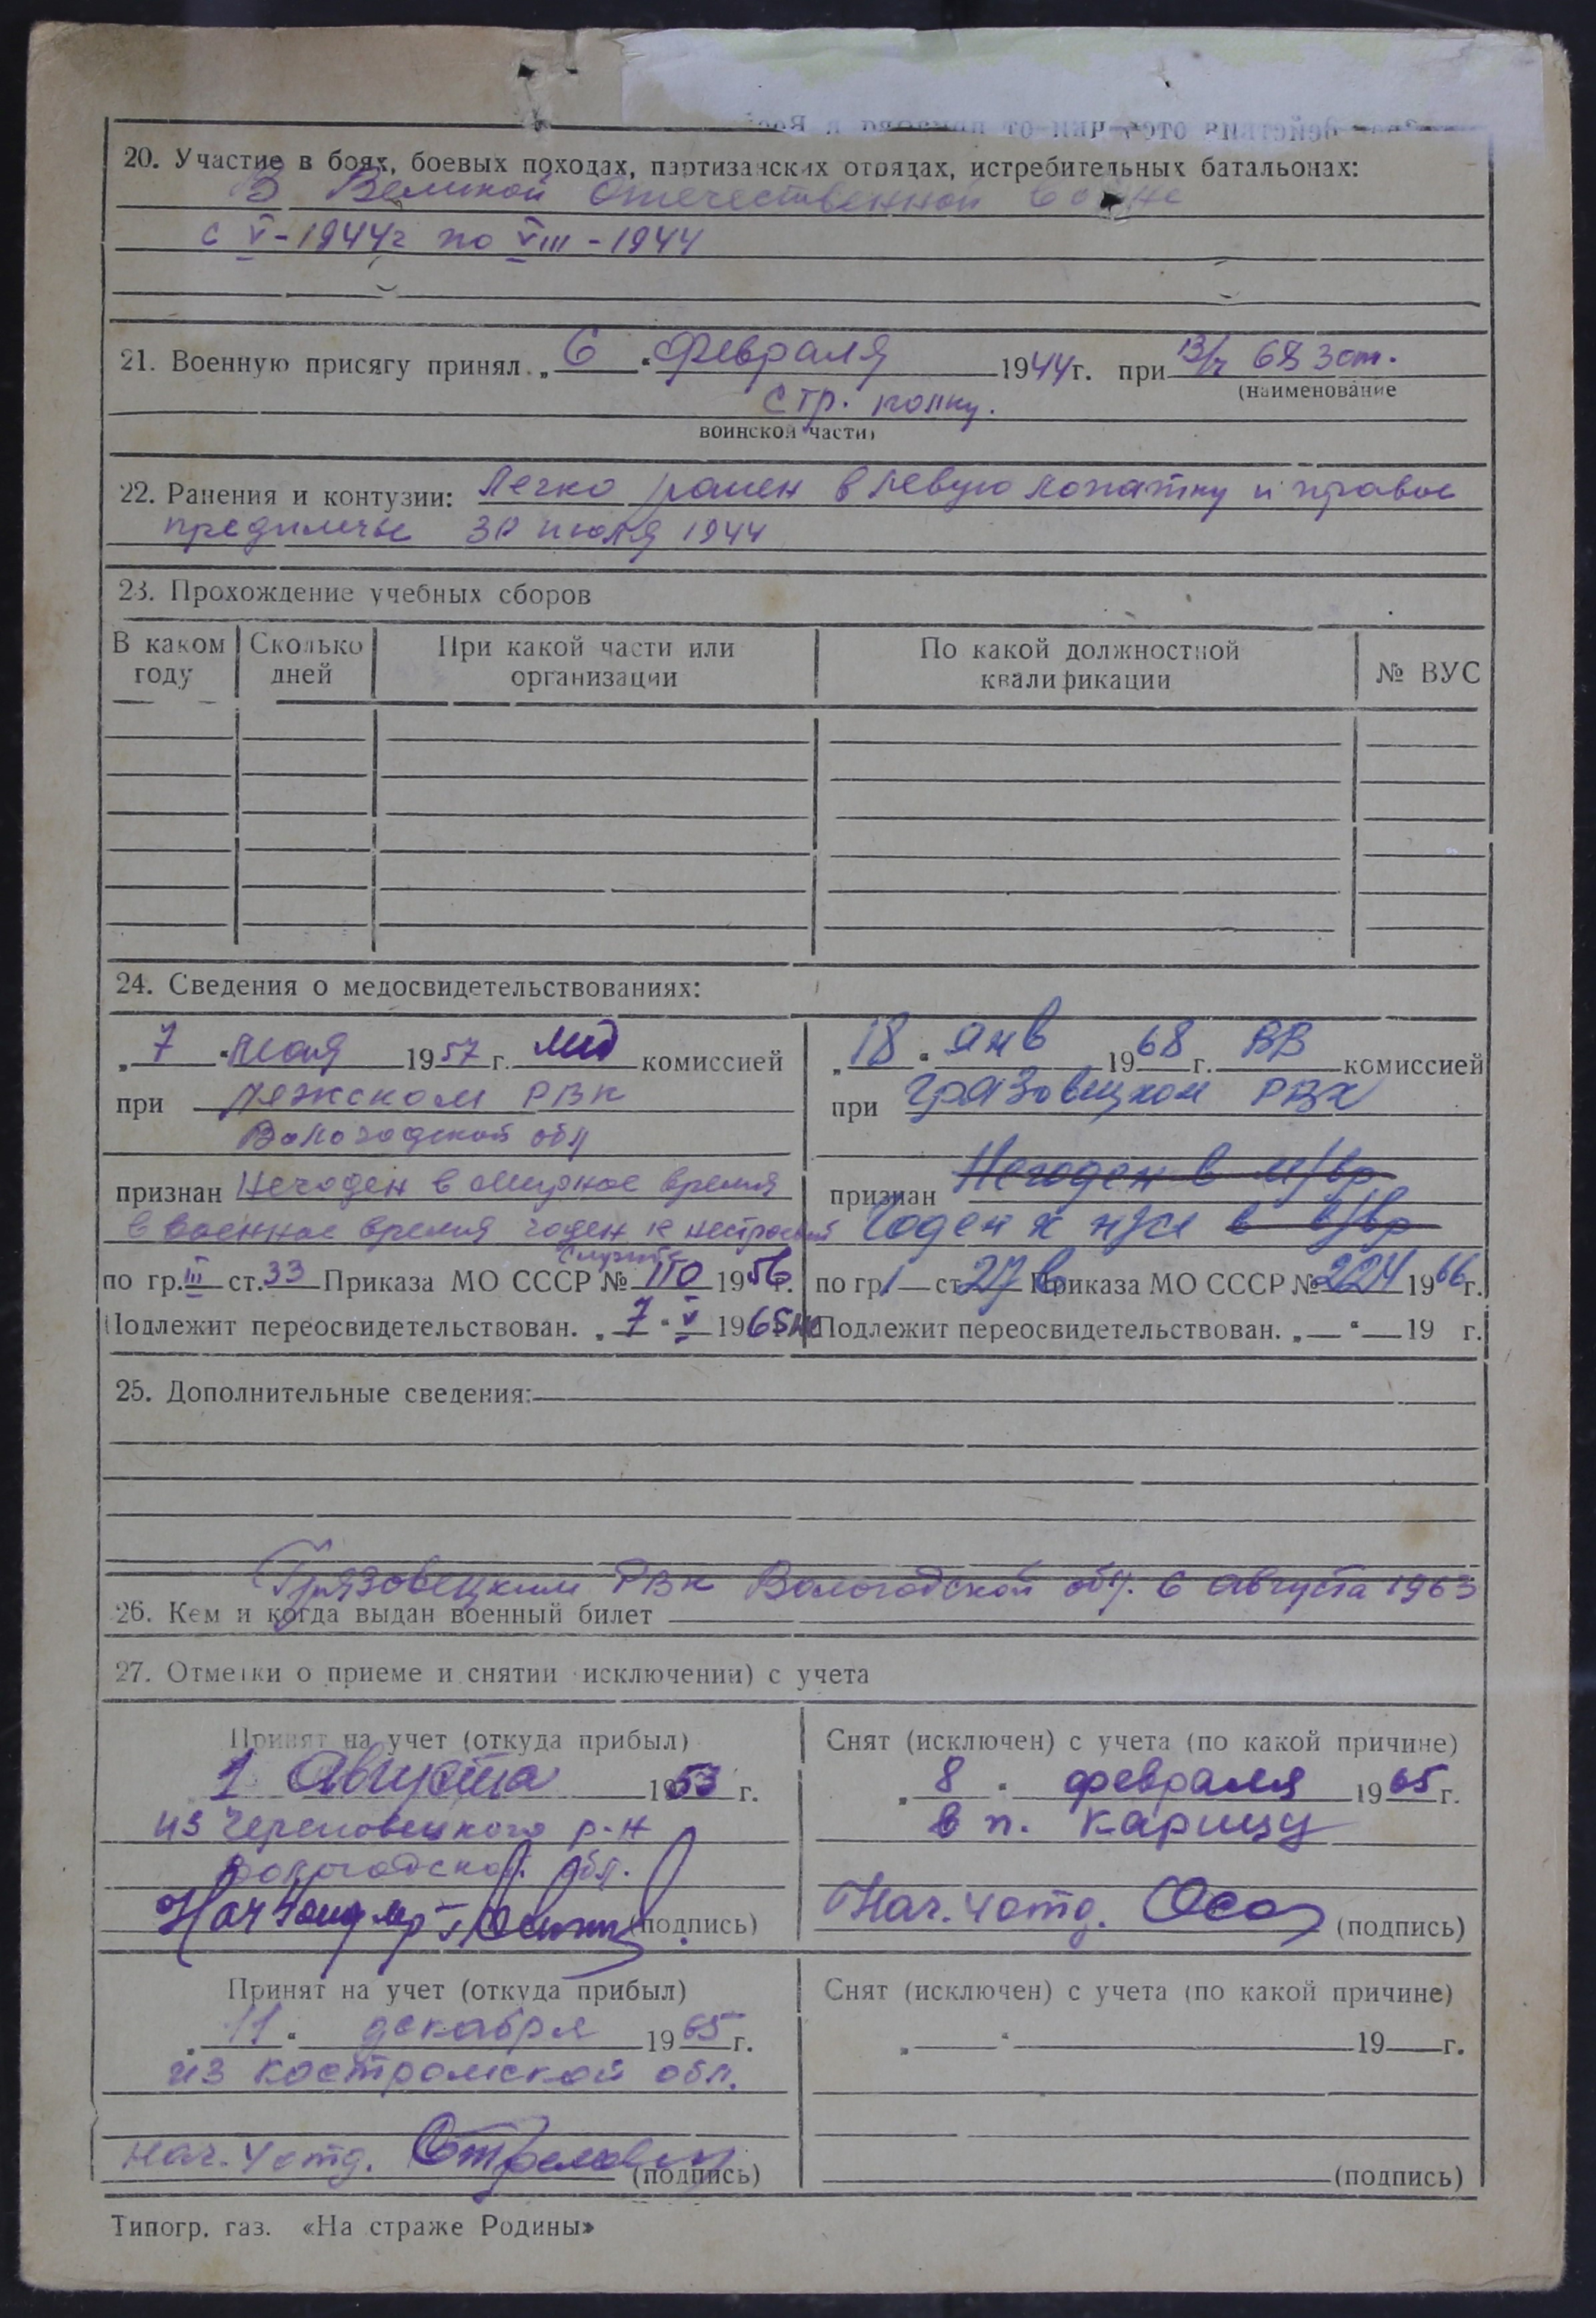 20. Участие в боях, боевых походах, партизанских отрядах, истребительных батальонах:
В Великой Отечественной войне
с V-1944г по VIII-1944
21. Военную присягу принял „6“ февраля 1944г. при в/ч 68 зст.
(наименование
стр. полку.
воинской части)
22. Ранения и контузии: легко ранен в левую лопатку и правое
предплечье 30 июля 1944
23. Прохождение учебных сборов
В каком году | Сколько дней | При какой части или организации | По какой должностной квалификации | № ВУС
24. Сведения о медосвидетельствованиях:
„7“ мая 1957г. мед комиссией
при Лежском РВК
Вологодской обл
признан Негоден в мирное время
в военное время годен к нестроевой
службе
по гр. III ст. 33 Приказа МО СССР № 110 1956г.
Подлежит переосвидетельствован. „7“ V 1965
„18“ янв 1968г. ВВ комиссией
при Грязовецком РВК
признан Негоден в м/вр
Годен к н/сл в в/вр
по гр 1 ст 27 в Приказа МО СССР № 224 1966г.
не Подлежит переосвидетельствован. „ “ 19 г.
25. Дополнительные сведения:
Грязовецким РВК Вологодской обл. 6 августа 1963
26. Кем и когда выдан военный билет
27. Отметки о приеме и снятии исключении) с учета
Принят на учет (откуда прибыл)
1 Августа 1953 г.
из Череповецкого р-н
Вологодской обл.
(подпись)
Снят (исключен) с учета (по какой причине)
„8“ февраля 1965г.
в п. Карицу
Нач. 4 отд. (подпись)
Принят на учет (откуда прибыл)
„11“ декабря 1965г.
из Костромской обл.
Нач. 4 отд. (подпись)
Снят (исключен) с учета (по какой причине)
„ “ 19 г.
(подпись)
Типогр. газ. «На страже Родины»